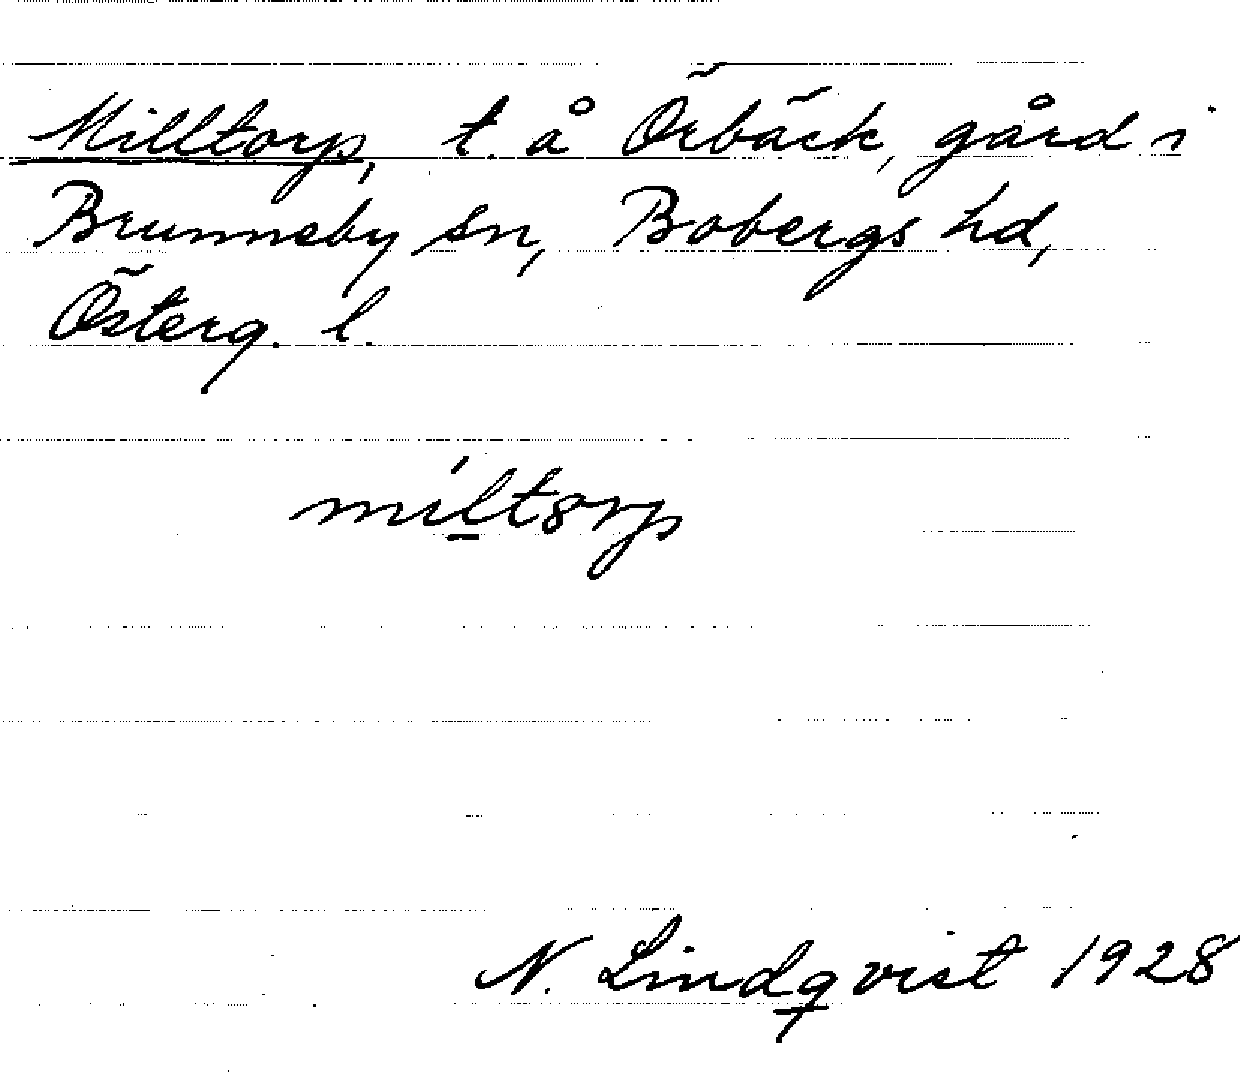 Milltorp, t. å Örbäck, gård i
Brunneby sn, Bobergs hd,
Österg. l.
míltorp
N. Lindqvist 1928